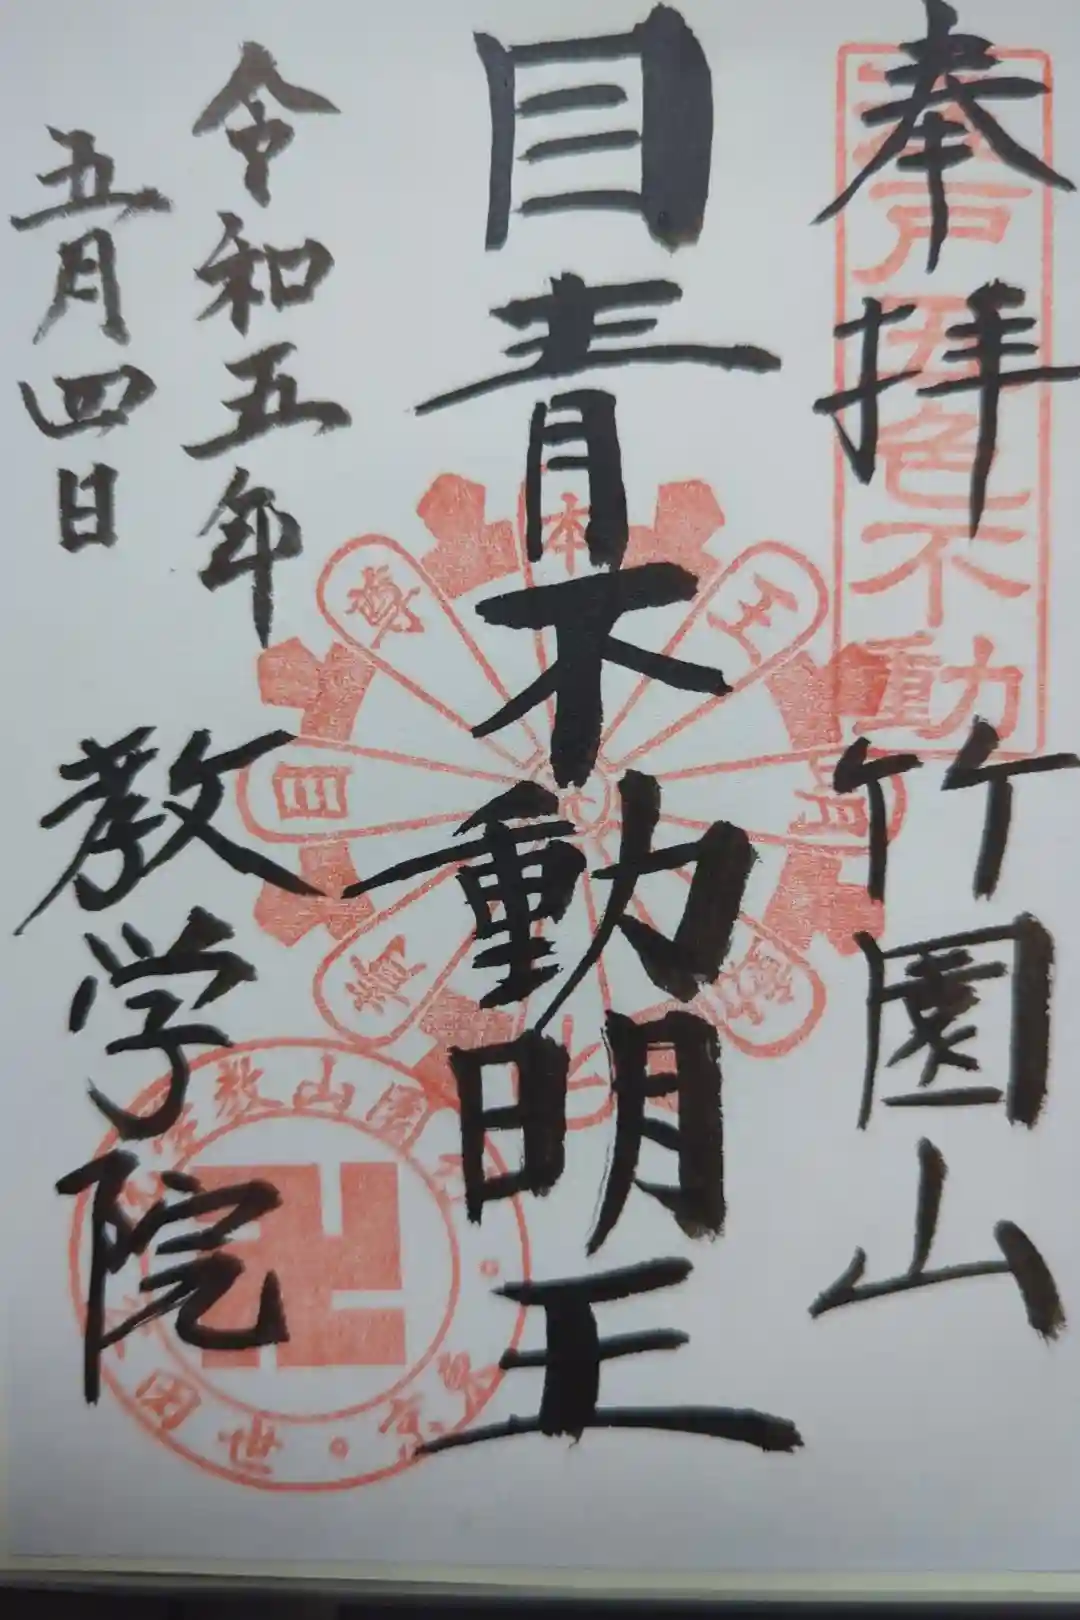 奉拝
竹園山
江戸五色不動
目青不動明王
本
王
尊
令和五年
五月四日
教学院
竹園山教学院
東京・世田谷